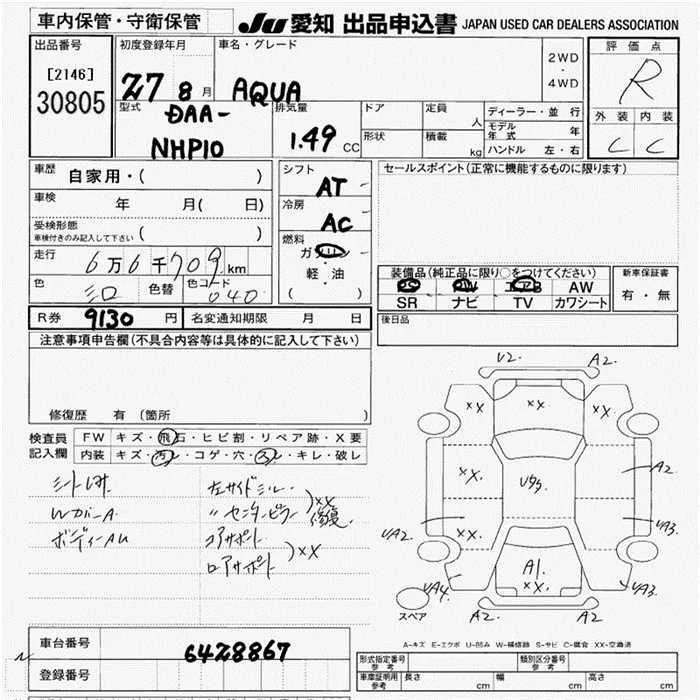 車内保管・守衛保管
JU 愛知 出品申込書 JAPAN USED CAR DEALERS ASSOCIATION
出品番号
[2146]
30805
初度登録年月
27 8 月
車名・グレード
AQUA
2WD
・
4WD
評価点
R
外装 内装
C C
型式
DAA-
NHP10
排気量
1.49 CC
ドア
定員
人
形状
積載
kg
ディーラー・並行
モデル年式 年
ハンドル 左・右
車歴 自家用・( )
車検 年 月( 日)
受検形態
車検付きのみ記入して下さい ( )
走行 6万6千709km
色 色替 色コード
040
シフト
AT
冷房
AC
燃料
ガソリン
・
軽・油
( )
セールスポイント(正常に機能するものに限ります)
装備品(純正品に限り○をつけてください)
PS PW エアB AW
SR ナビ TV カワシート
新車保証書
有・無
R券 9130 円 名変通知期限 月 日
後日品
注意事項申告欄(不具合内容等は具体的に記入して下さい)
修復歴 有 (箇所 )
検査員
記入欄
FW キズ・飛石・ヒビ割・リペア跡・X要
内装 キズ・汚レ・コゲ・穴・スレ・キレ・破レ
WカバーA
左サイドシル・
〃 センターピラー )XX
修復
コアサポート
ロアサポート )XX
U2. A2.
XX XX. XX
XX.
A2
UA2
XX.
UA3
A1.
XX.
UA4 UA3
スペア
A2 A2
A-キズ E-エクボ U-凹み W-補修跡 S-サビ C-腐食 XX-交換済
車台番号 6428867
登録番号
形式指定番号
参考
類別区分番号
参考
車庫証明用
参考
長さ cm 幅 cm 高さ cm